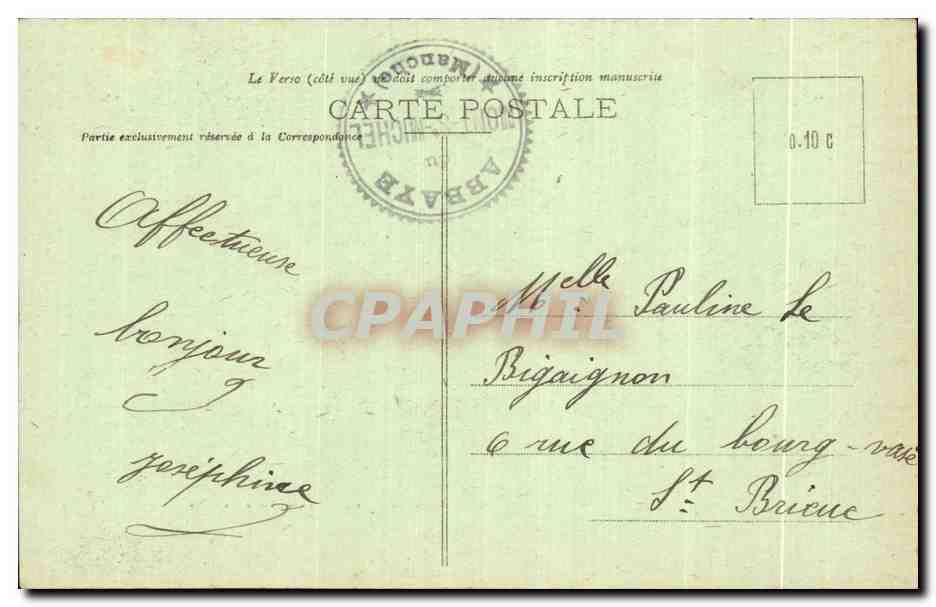 Le Verso (côté vue) ne doit comporter aucune inscription manuscrite
CARTE POSTALE
Partie exclusivement réservée à la Correspondance
ABBAYE
du
MONT-S-MICHEL
(Manche)
0.10 C
Affectueuse
bonjour
Joséphine
Melle Pauline Le
Bigaignon
6 rue du bourg-vasé
St Brieuc
CPAPHIL